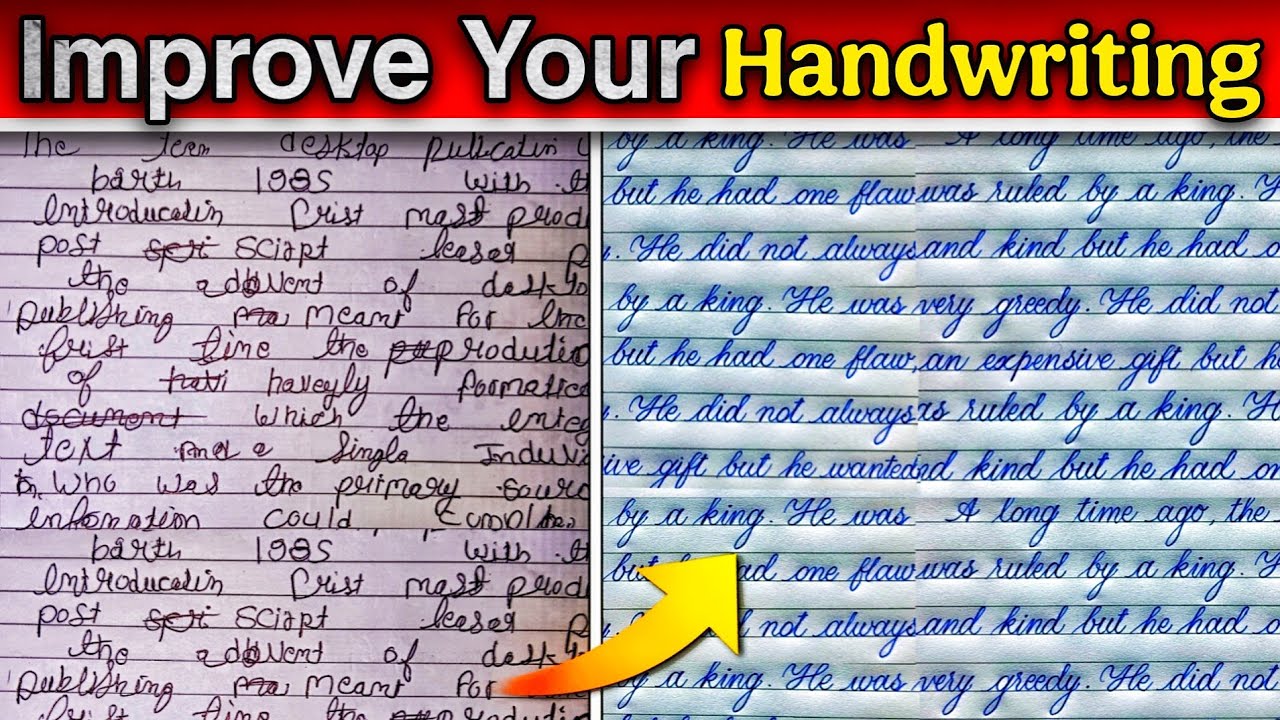 Improve Your Handwriting
The term desktop
barth 1985 with
Introducatin Crist mast prod
post sciapt leaser
the adovent of desk
publishing meant for Inc
frist time the produtio
of haveyly formatica
document which the integ
text and a Singla Induvi
who was the primary sourc
infomation could
barth 1985 with
Introducatin Crist mast prod
post sciapt leaser
the adovent of desk
publishing meant for
frist time the produtio
by a king. He was A long time ago, the
but he had one flaw was ruled by a king. H
. He did not always and kind but he had o
by a king. He was very greedy. He did not
but he had one flaw, an expensive gift but h
. He did not always as ruled by a king. H
ive gift but he wanted nd kind but he had on
by a king. He was A long time ago, the
but ad one flaw was ruled by a king. H
not always and kind but he had o
y a king. He was very greedy. He did not